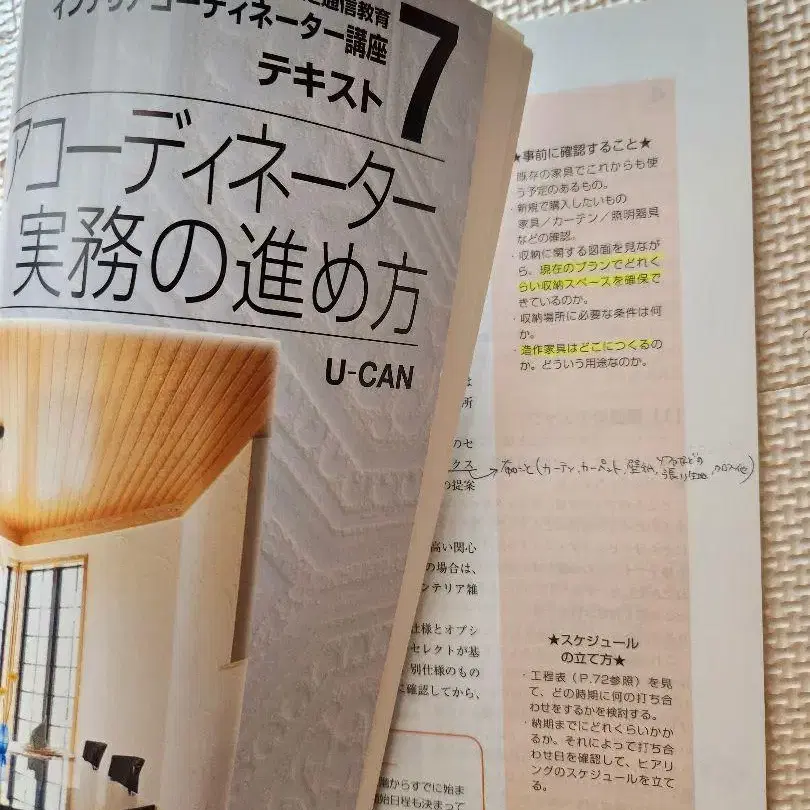 通信教育
インテリアコーディネーター講座
テキスト 7
アコーディネーター
実務の進め方
U-CAN
★事前に確認すること★
・既存の家具でこれからも使
う予定のあるもの。
・新規で購入したいもの
家具／カーテン／照明器具
などの確認。
・収納に関する図面を見なが
ら、現在のプランでどれく
らい収納スペースを確保で
きているのか。
・収納場所に必要な条件は何
か。
・造作家具はどこにつくるの
か。どういう用途なのか。
は
所
のセ
クス
の提案
布のこと(カーテン、カーペット、壁紙、ソファなどの張り生地、クロス他)
高い関心
の場合は、
ンテリア雑
仕様とオプシ
セレクトが基
別仕様のもの
に確認してから、
★スケジュール
の立て方★
・工程表（P.72参照）を見
て、どの時期に何の打ち合
わせをするかを検討する。
・納期までにどれくらいかか
るか。それによって打ち合
わせ日を確認して、ヒアリ
ングのスケジュールを立て
る。
階からすでに始ま
開始日程も決まって